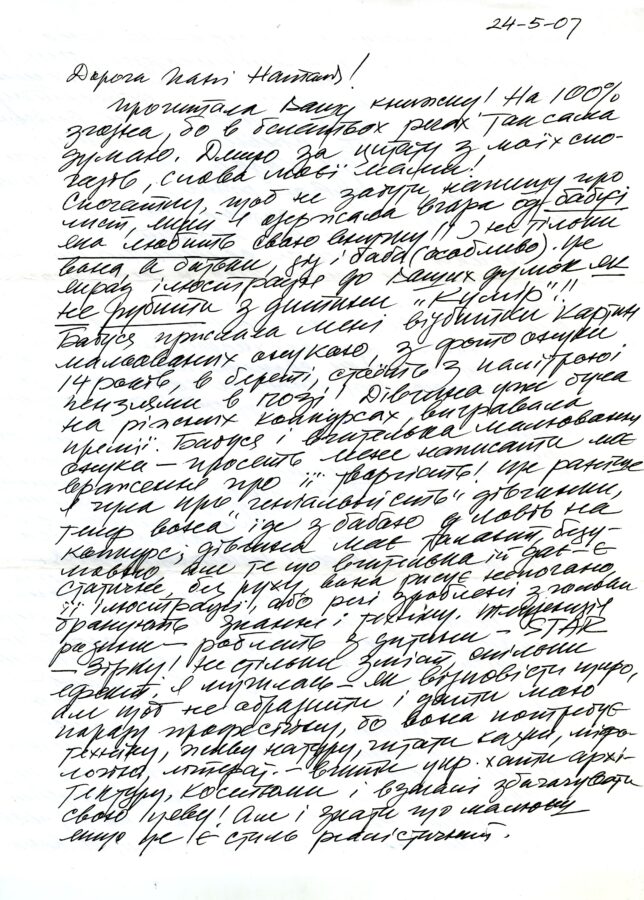 24-5-07
Дорога Пані Наталю!
Прочитала Вашу книжку! На 100%
згодна, бо в багатьох речах так сама
думаю. Дякую за цитату з моїх спо-
гадів, слова моєї мами!
Спочатку, щоб не забути, напишу про
лист, який я одержала вчора од бабусі
яка любить свою внучку!! І не тільки
вона, а батьки, дід і баба (особливо). Це
якраз ілюстрація до Ваших думок як
не рубити з дитини "Кумір"!!
Бабуся прислала мені відбитки картин
мальованих онукою, з фото онуки
14 років, в береті, стоїть з палітрою і
пензлями в позі! Дівчина уже була
на ріжних конкурсах, вигравала
премії. Бабуся і вчителька малювання
онука — просять мене написати моє
враження про її творчість! Ще раніше
я чула про "геніальність" дівчинки,
тепер вона іде з бабою у Львів на
конкурс, дівчина має талант, безу-
мовно але те що вчителька їй дає — є
статичне, без руху, вона рисує непогано,
її ілюстрації, або речі зроблені з голови
бракують знання і техніку.
разом — роблять з дитини — STAR
— Зірку! Не стільки зміст, скільки
ефект! Я мучилась — як відповісти щиро,
але щоб не образити і дати мою
пораду професійну, бо вона потребує
техніку, живу натуру, читати казки, міфо-
логію, літерат. — вчити укр. хати архі-
тектуру, костюми і взагалі збагачувати
свою уяву! Але і знати що малюєш
якщо це є стиль реалістичний.